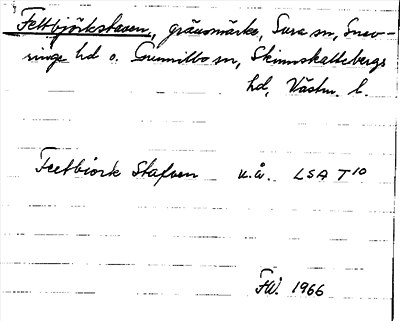 Fettbjörkstaven, gränsmärke, Sura sn, Snev-
ringe hd o. Gunnilbo sn, Skinnskattebergs
hd, Västm. l.
Feetbiork Stafven u.å. LSA T10
FW. 1966